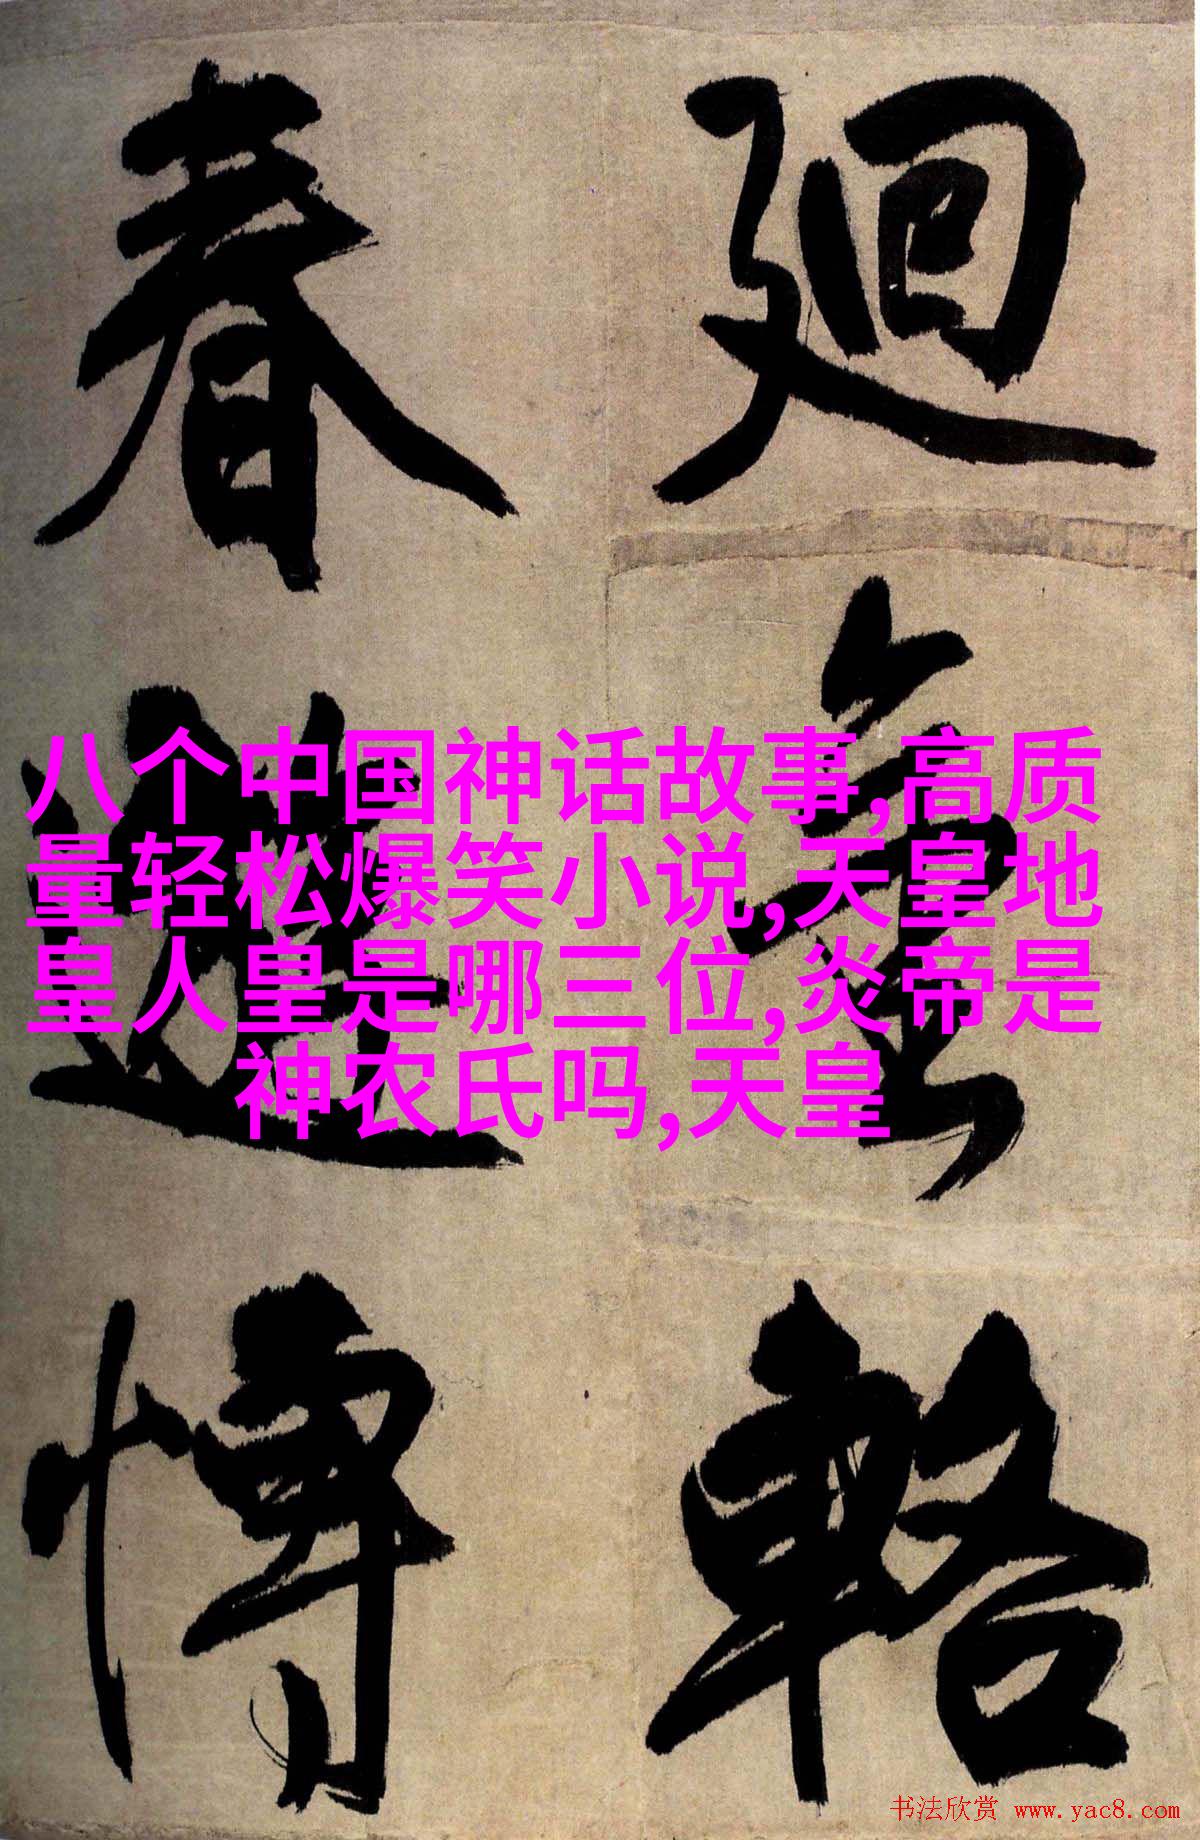 廻
輅
春
遊
八个中国神话故事,高质
量轻松爆笑小说,天皇地
皇人皇是哪三位,炎帝是
神农氏吗,天皇
书法欣赏 www.yac8.com